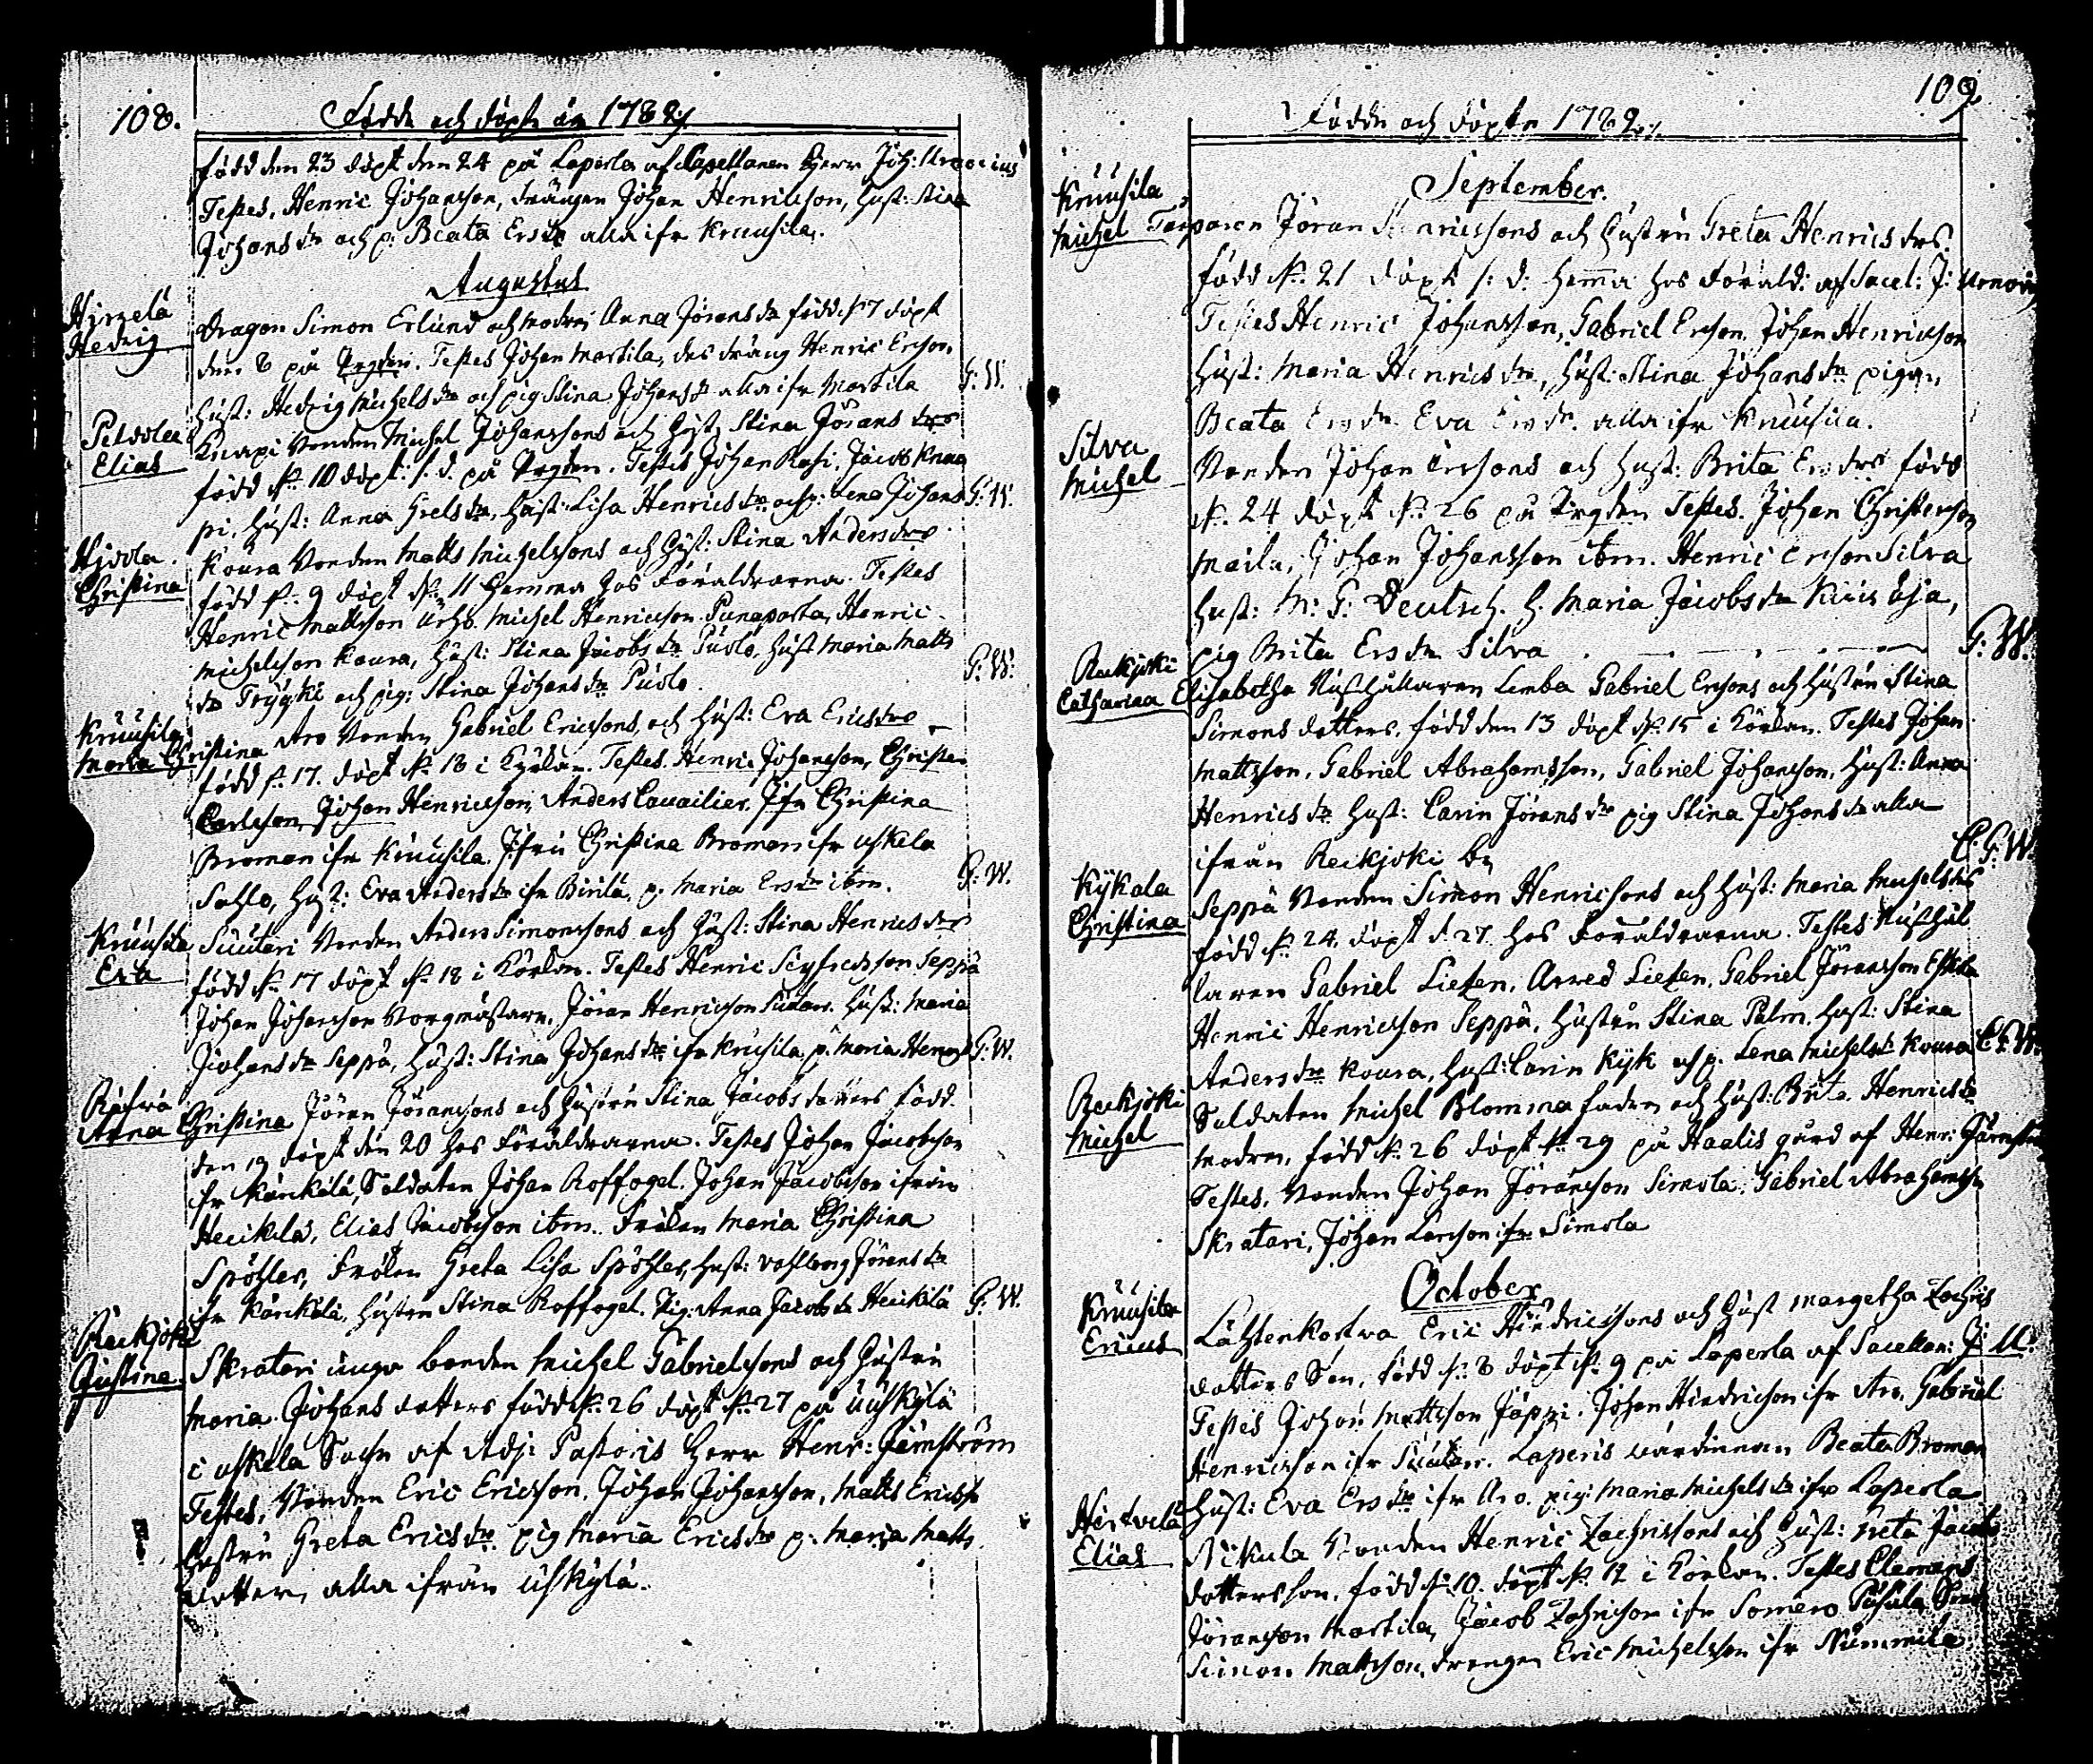 108.
Födde och döpte år 1782
född den 23 döpt den 24 på Laperla af Capellanen Herr Joh: Urnovius
Testes, Henric Johansson, drängen Johan Henricsson, hust: Stina
Johans dr och p: Beata Ers dr alla ifr Kruusila.
Augustus
Hirvelä
Hedvig
Dragon Simon Erlund och modren Anna Jörans dr född d. 7 döpt
den 8 på Prgden. Testes Johan Martila, des dräng Henric Ersson,
hust: Hedvig Michels dr och pig Stina Johans dr alla ifr Martila
G: W.
Elias
Knapi bonden Michel Johanssons och hust. Stina Jörans drs
född d. 10 döpt: s. d. på Prgden. Testes Johan Rasi, Jacob Knaa
pi, hust: Anna Grels dr, hust: Lisa Henrics dr och p: Lena Johans
G: W.
Christina
Koura bonden Matts Michelssons och hust: Stina Anders drs
född d. 9 döpt d. 11 hemma hos Föräldrarna. Testes
Henric Mattsson Michel Henricsson Punaporta, Henric
Michelsson Koura, hust: Stina Jacobs dr hust Maria Matts
dr Tryyki och pig: Stina Johans dr
G: W:
Kruusila
Maria Christina
Aro bonden Gabriel Ericssons, och hust: Eva Erics drs
född d. 17. döpt d. 18 i Kyrkan. Testes. Henric Johansson, Christer
Carlsson, Johan Henricsson, Anders Cavailier. Jfr Christina
Broman ifr Kruusila. Jfru Christina Broman ifr Uskela
Sahlo, hust: Eva Anders dr ifr p: Maria Ers dr ibm.
G: W.
Kruusila
Eva
Suutari bonden Anders Simonssons och hust: Stina Henrics drs
född d. 17 döpt d. 18 i Körkan. Testes Henric Sigfredsson Seppä
Johan Johansson Jöran Henricsson Suutari. Hust: Maria
Johans dr Seppä, hust: Stina Johans dr ifr Kruusila. p: Maria Henrics
G: W.
Anna Christina
Jöran Jöranssons och hustru Stina Jacobs dotters född
den 19 döpt den 20 hos Föräldrarna. Testes Johan Jacobsson
ifr Kärkelä, Soldaten Johan Roffogel. Johan Jacobsson ifrån
Heickilä, Elias Jacobsson ibm. Fröken Maria Christina
Spöhler, Fröken Greta Lisa Spöhler, hust: Valborg Jörans dr
ifr Kärkelä, hustru Stina Roffogel. Pig: Anna Jacobs dr Heickilä
G: W.
Reckjoki
Justina
Skratari unga bonden Michel Gabrielssons och hustru
Maria Johans dotters född d. 26 döpt d. 27 på Uuskylä
i Uskela Sochn af Adj: Pastoris Herr Henr: Jernström
Testes, bonden Eric Ericsson, Johan Johansson, Matts Ericsson
hustru Greta Erics dr pig Maria Erics dr p: Maria Matts
dotter, alla ifrån Uuskylä.
109.
Födde och döpte 1782
September.
Kruusila
Michel
Torparen Jöran Henricssons och hustru Greta Henrics drs.
född d. 21 döpt s: d: hemma hos Föräld: af Sacel: J: Urnovius
Testes Henric Johansson, Gabriel Ersson, Johan Henricsson
hust: Maria Henrics dr, hust: Stina Johans dr pigan
Beata Ers dr. Eva Ers dr. alla ifr Kruusila.
Silva
Michel
bonden Johan Erssons och hust: Brita Ers drs född
d. 24 döpt d. 26 på Prgden Testes. Johan Christersson
Maila, Johan Johansson ibm. Henric Ersson Silva
hust: M: G: Deutsch. h. Maria Jacobs dr
pig Brita Ers dr Silva
G: W.
Reckjoki
Catharina Elisabetha
Rusthållaren Lemba Gabriel Erssons och hustru Stina
Simons dotters, född den 13 döpt d. 15 i Körkan. Testes Johan
Mattsson, Gabriel Abrahamsson, Gabriel Johansson, hust: Anna
Henrics dr hust: Carin Jörans dr pig Stina Johans dr alla
ifrån Reckjoki by
C. G: W.
Kykala
Christina
Seppä bonden Simon Henricssons och hust: Maria Michels drs
född d. 24, döpt d. 27 hos Föräldrarna. Testes Rusthål
laren Gabriel Lietzen, Arved Lietzen, Gabriel Jöransson
Henric Henricsson Seppä, hustru Stina Palm, hust: Stina
Anders dr Koura, hust: Carin Kyk och p. Lena Michels dr Koura
C. G: W.
Reckjoki
Michel
Soldaten Michel Blomma fadren och hust: Brita Henrics dr
modren, född d. 26 döpt d. 29 på Haalis gård af Henr: Jernström
Testes, bonden Johan Jöransson Simola, Gabriel Abrahamsson
Skratari, Johan Larsson ifr Simola
October
Kruusila
Ericus
Lähtenkorva Eric Hindricssons och hust Margetha Zachris
dotters Son, född d. 8 döpt d. 9 på Laperla af Sacellan: J: U:
Testes Johan Mattsson Jäppi. Johan Hindricsson ifr Aro. Gabriel
Henricsson ifr Suutari. Laperis värdinnan Beata Broman
hust: Eva Ers dr ifr Aro. pig: Maria Michels dr ifr Laperla
Elias
Nikula bonden Henric Zachrissons och hust: Greta Jacobs
dottersson, född d. 10. döpt d. 12 i Körkan. Testes Clemens
Jöransson Martila, Jacob Zachrisson ifr Somero
Simon Mattsson, drengen Eric Michelsson ifr Nummila